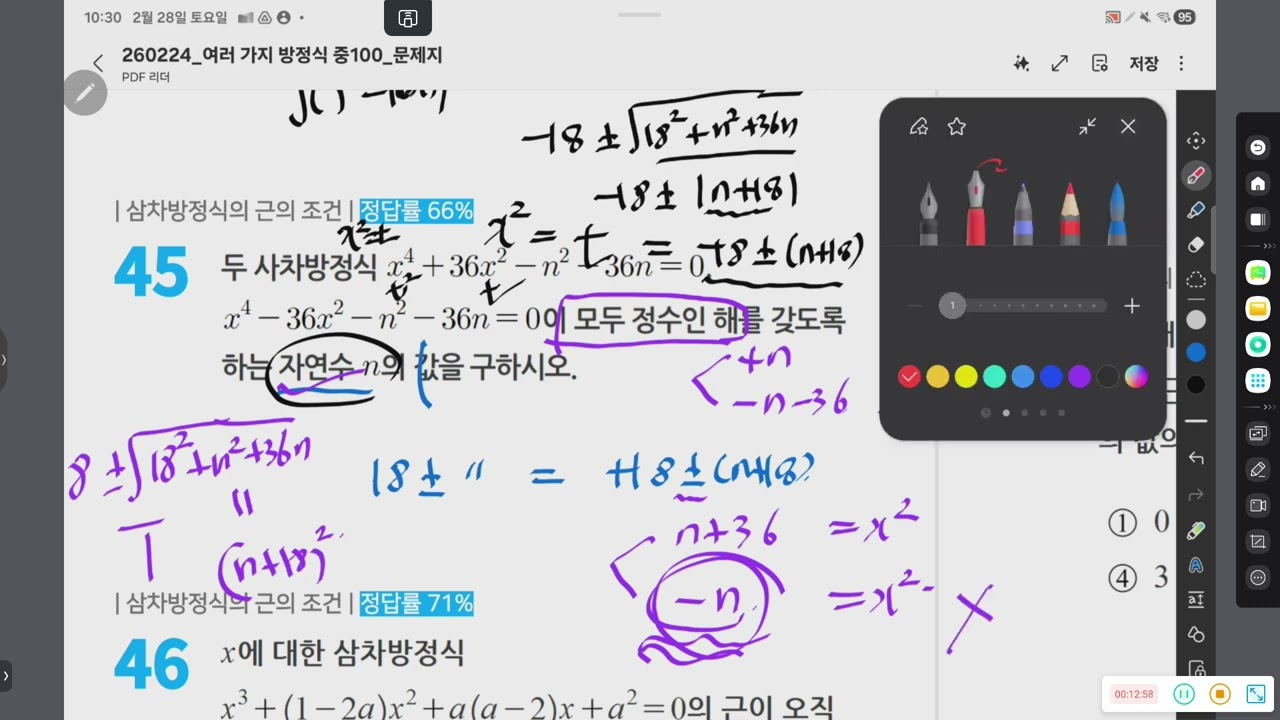 10:30 2월 28일 토요일
95
260224_여러 가지 방정식 중100_문제지
PDF 리더
저장
-18 ± √18²+n²+36n
-18 ± |n+18|
| 삼차방정식의 근의 조건 | 정답률 66%
x²=t
x² = t = -18 ± (n+18)
45 두 사차방정식 x⁴ + 36x² − n² − 36n = 0,
t² t
x⁴ − 36x² − n² − 36n = 0이 모두 정수인 해를 갖도록
하는 자연수 n의 값을 구하시오.
+n
-n-36
1
18 ± √18²+n²+36n
18 ± 〃 = +18 ± (n+18)
(n+18)²
n+36 = x²
-n = x²
① 0
④ 3
| 삼차방정식의 근의 조건 | 정답률 71%
46 x에 대한 삼차방정식
x³ + (1 − 2a)x² + a(a − 2)x + a² = 0의 근이 오직
00:12:58